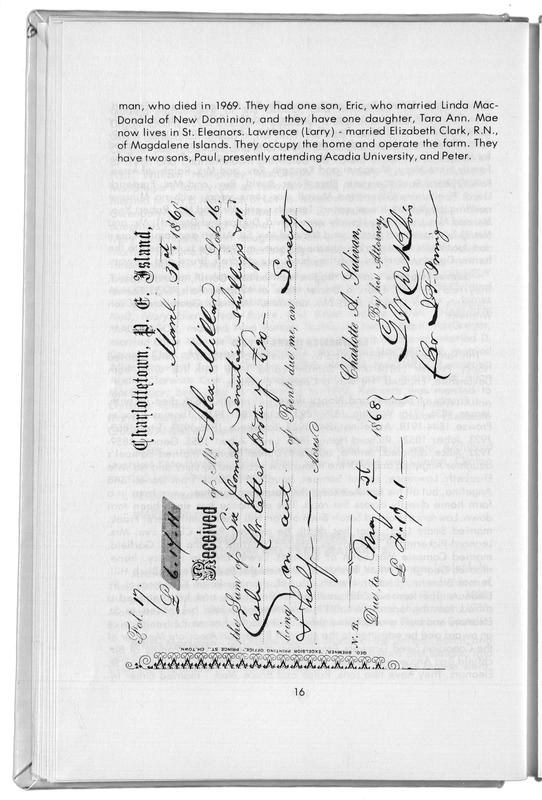 man, who died in 1969. They had one son, Eric, who married Linda Mac-
Donald of New Dominion, and they have one daughter, Tara Ann. Mae
now lives in St. Eleanors. Lawrence (Larry) - married Elizabeth Clark, R.N.,
of Magdalene Islands. They occupy the home and operate the farm. They
have two sons, Paul, presently attending Acadia University, and Peter.
Fol. 17.
Charlottetown, P. E. Island,
March 31st 1869
£ 6.17.11
Received of Mr. Alex Millar Lot 16.
the Sum of Six Pounds Seventeen Shillings & 11d
Cash - for letter
being on acct of Rent due me, on Seventy
& half Acres
N. B.
Charlotte A. Sulivan,
Due to May 1st 1868}
By her Attorney,
£ 4.17.1
for
GEO. BREMNER, EXCELSIOR PRINTING OFFICE, PRINCE ST. CH. TOWN.
16